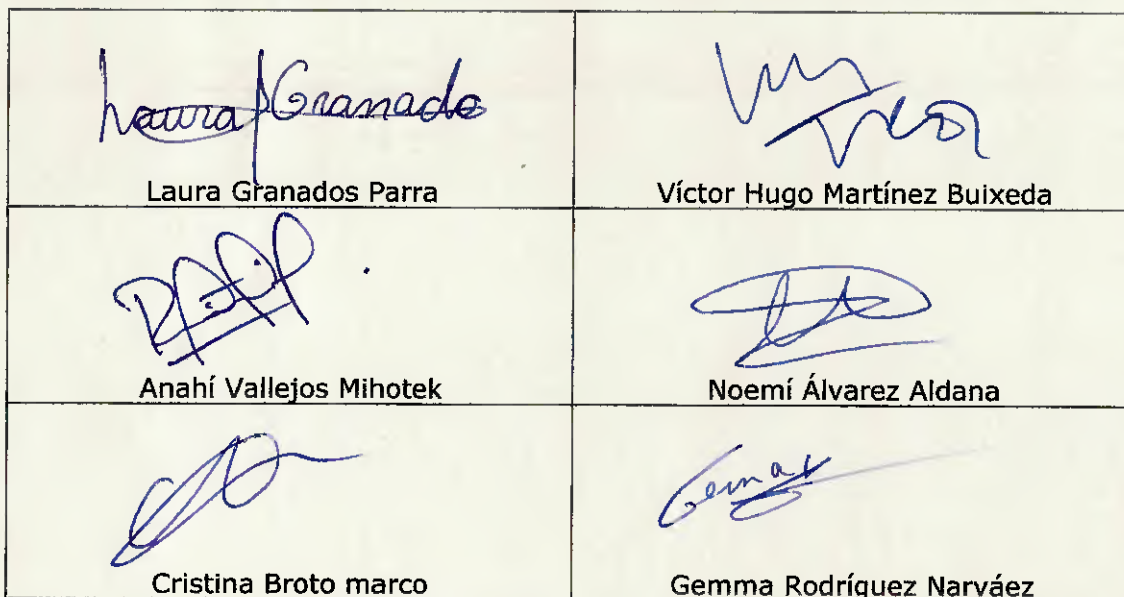 Laura Granado
Laura Granados Parra
Víctor Hugo Martínez Buixeda
Anahí Vallejos Mihotek
Noemí Álvarez Aldana
Cristina Broto marco
Gemma Rodríguez Narváez